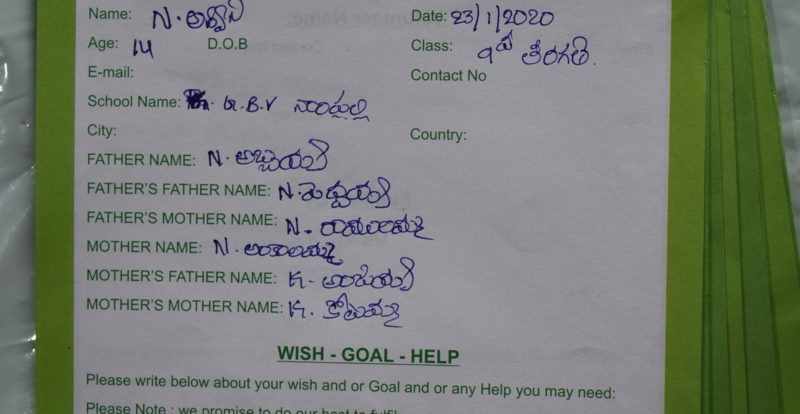 Name: N. అశ్విని Date: 23/1/2020
Age: 14 D.O.B Class: 9వ తరగతి.
E-mail: Contact No
School Name: G.B.V
City: Country:
FATHER NAME: N. అబ్బయ్య
FATHER'S FATHER NAME: N. పెద్దయ్య
FATHER'S MOTHER NAME: N. రాములమ్మ
MOTHER NAME: N.
MOTHER'S FATHER NAME: K. అంజయ్య
MOTHER'S MOTHER NAME: K. కోటమ్మ
WISH - GOAL - HELP
Please write below about your wish and or Goal and or any Help you may need:
Please Note : we promise to do our best to fulfil